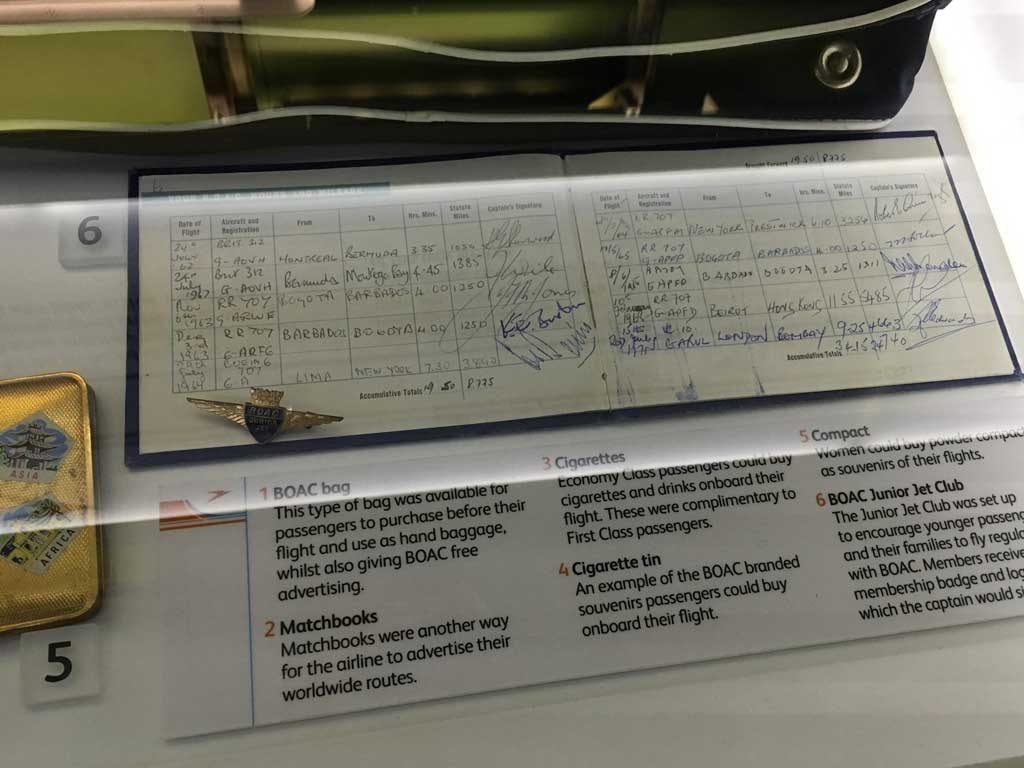 6
Brought Forward 19.50 8775
YOUR B.O.A.C. HOURS AND MILEAGE
Date of Flight Aircraft and Registration From To Hrs. Mins. Statute Miles Captain's Signature
G-AOVH MONTREAL BERMUDA 3.35 1054
BRIT 312
G-AOVH Bermuda Montego Bay 4.45 1385
RR 707 BOGOTA BARBADOS 4.00 1250
1963
RR 707 BARBADOS BOGOTA 4.00 1250
1963 G-ARFG
707
LIMA NEW YORK 7.30
Accumulative Totals 19 50 8775
Date of Flight Aircraft and Registration From To Hrs. Mins. Statute Miles Captain's Signature
RR 707
NEW YORK PRESTWICK 6.10 3256
RR 707
BOGOTA BARBADOS 4.00 1250
G APFD 3.25 1311
RR 707
G-APFD BEIRUT HONG KONG 11.55 5485
LONDON BOMBAY 9.25 4663
Accumulative Totals
BOAC
JUNIOR
JET
ASIA
AFRICA
5
1 BOAC bag
This type of bag was available for
passengers to purchase before their
flight and use as hand baggage,
whilst also giving BOAC free
advertising.
2 Matchbooks
Matchbooks were another way
for the airline to advertise their
worldwide routes.
3 Cigarettes
Economy Class passengers could buy
cigarettes and drinks onboard their
flight. These were complimentary to
First Class passengers.
4 Cigarette tin
An example of the BOAC branded
souvenirs passengers could buy
onboard their flight.
5 Compact
Women could buy powder compac
as souvenirs of their flights.
6 BOAC Junior Jet Club
The Junior Jet Club was set up
to encourage younger passen
and their families to fly regul
with BOAC. Members receive
membership badge and log
which the captain would si